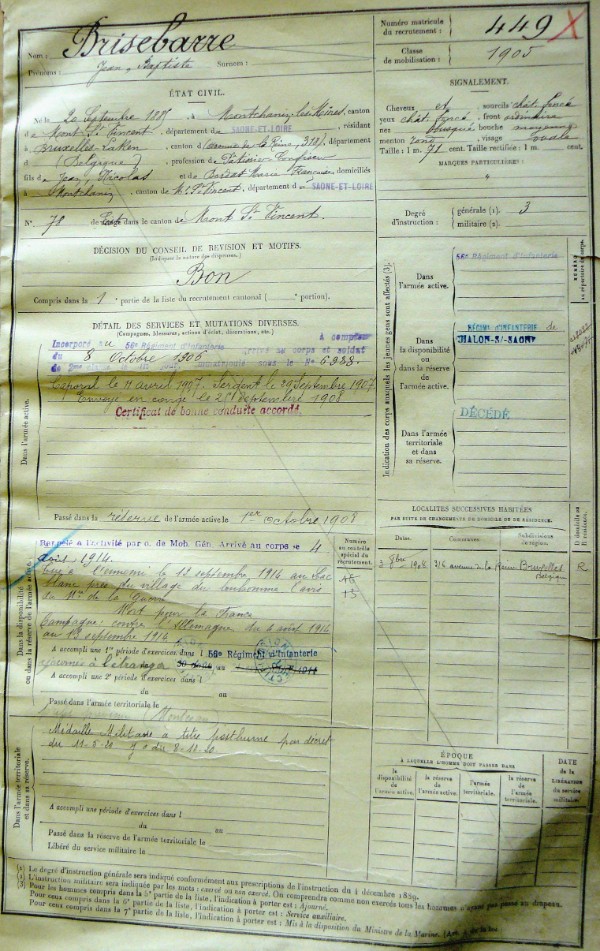 Nom : Brisebarre
Prénoms : Jean, Baptiste Surnom :
Numéro matricule du recrutement : 449
Classe de mobilisation : 1905
ÉTAT CIVIL.
Né le 20 Septembre 1885, à Montchanin-les-Mines, canton
d Mont St Vincent, département d SAONE-ET-LOIRE, résidant
à Bruxelles-Laeken, canton département
d (Belgique), profession de
fils d Jean, Nicolas et d Marie Françoise, domiciliés
à Montchanin, canton de Mt St Vincent, département d SAONE-ET-LOIRE
N° 78 de tirage dans le canton de Mont St Vincent.
SIGNALEMENT.
Cheveux et sourcils chât. foncé
yeux chât. foncé, front ordinaire
nez busqué bouche moyenne
menton rond, visage ovale
Taille : 1 m. 71 cent. Taille rectifiée : 1 m. cent.
MARQUES PARTICULIÈRES :
Degré d'instruction : générale (1). 3
militaire (2).
DÉCISION DU CONSEIL DE REVISION ET MOTIFS.
Bon
Compris dans la 1 partie de la liste du recrutement cantonal ( portion).
DÉTAIL DES SERVICES ET MUTATIONS DIVERSES.
(Campagnes, blessures, actions d'éclat, décorations, etc.)
Dans l'armée active.
Incorporé au 56e Régiment d'Infanterie à compter
du 8 Octobre 1906 Arrivé au corps et soldat
de 2me classe le dit jour, immatriculé sous le N° 6938.
Caporal le 11 avril 1907. Sergent le 29 Septembre 1907
Envoyé en congé le 25 Septembre 1908
Certificat de bonne conduite accordé.
Passé dans la réserve de l'armée active le 1er octobre 1908
Indication des corps auxquels les jeunes gens sont affectés (3).
Dans l'armée active.
56e Régiment d'Infanterie
Dans la disponibilité ou dans la réserve de l'armée active.
RÉGIMENT D'INFANTERIE de
CHALON-S/-SAONE
Dans l'armée territoriale et dans sa réserve.
DÉCÉDÉ
LOCALITÉS SUCCESSIVES HABITÉES
PAR SUITE DE CHANGEMENTS DE DOMICILE OU DE RÉSIDENCE.
Dates. Communes. Subdivisions de région. D. domicile R. résidence.
3 9bre 1908 316 avenue de la Reine Bruxelles Belgique R
Dans la disponibilité ou dans la réserve de l'armée active.
Rappelé à l'activité par o. de Mob. Gén. Arrivé au corps le 4
août 1914.
Tué à l'ennemi le 13 septembre 1914 au Sac
village du bonhomme (avis
du Mre de la Guerre
Mort pour la France
Campagne : contre l'Allemagne du 4 août 1914
au 13 septembre 1914
Numéro au contrôle spécial du recrutement.
A accompli une 1re période d'exercices dans l 56e Régiment d'Infanterie
séjournés à l'étranger du au
A accompli une 2e période d'exercices dans l
du au
Passé dans l'armée territoriale le
Dans l'armée territoriale et dans sa réserve.
Médaille Militaire à titre posthume par décret
du 11-5-20 J.O du 8-11-20
A accompli une période d'exercices dans l
du au
Passé dans la réserve de l'armée territoriale le
Libéré du service militaire le
ÉPOQUE
À LAQUELLE L'HOMME DOIT PASSER DANS
la disponibilité de l'armée active. la réserve de l'armée active. l'armée territoriale. la réserve de l'armée territoriale.
DATE de la libération du service militaire.
(1) Le degré d'instruction générale sera indiqué conformément aux prescriptions de l'instruction du 4 décembre 1889.
(2) L'instruction militaire sera indiquée par les mots : exercé ou non exercé. On comprendra comme non exercés tous les hommes n'ayant pas passé au drapeau.
(3) Pour les hommes compris dans la 5e partie de la liste, l'indication à porter est : Ajourné.
Pour ceux compris dans la 6e partie de la liste, l'indication à porter est : Service auxiliaire.
Pour ceux compris dans la 7e partie de la liste, l'indication à porter est : Mis à la disposition du Ministre de la Marine.